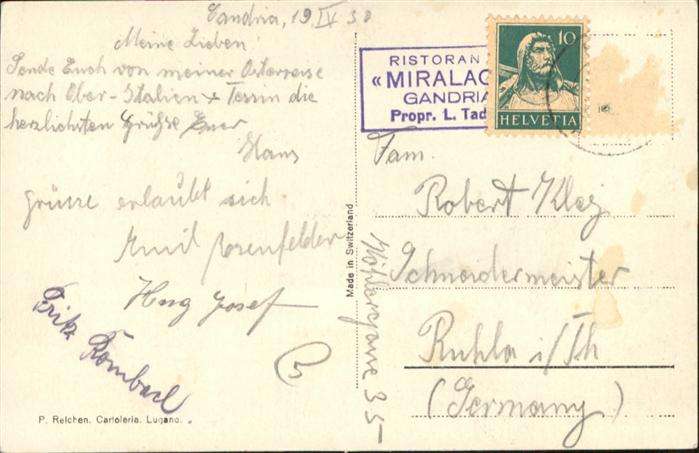 Gandria, 19 IV 30
Meine Lieben!
Sende Euch von meiner Osterreise
nach Ober-Italien + Tessin die
herzlichsten Grüsse Euer
Hans
Grüsse erlaubt sich
Emil Rosenfelder
Hug Josef
Fritz Rombach
P. Reichen. Cartoleria. Lugano.
Made in Switzerland
RISTORAN
«MIRALAG
GANDRIA
Propr. L. Tad
10
HELVETIA
Fam.
Robert
Schneidermeister
Ruhla i/Th
(Germany)
35